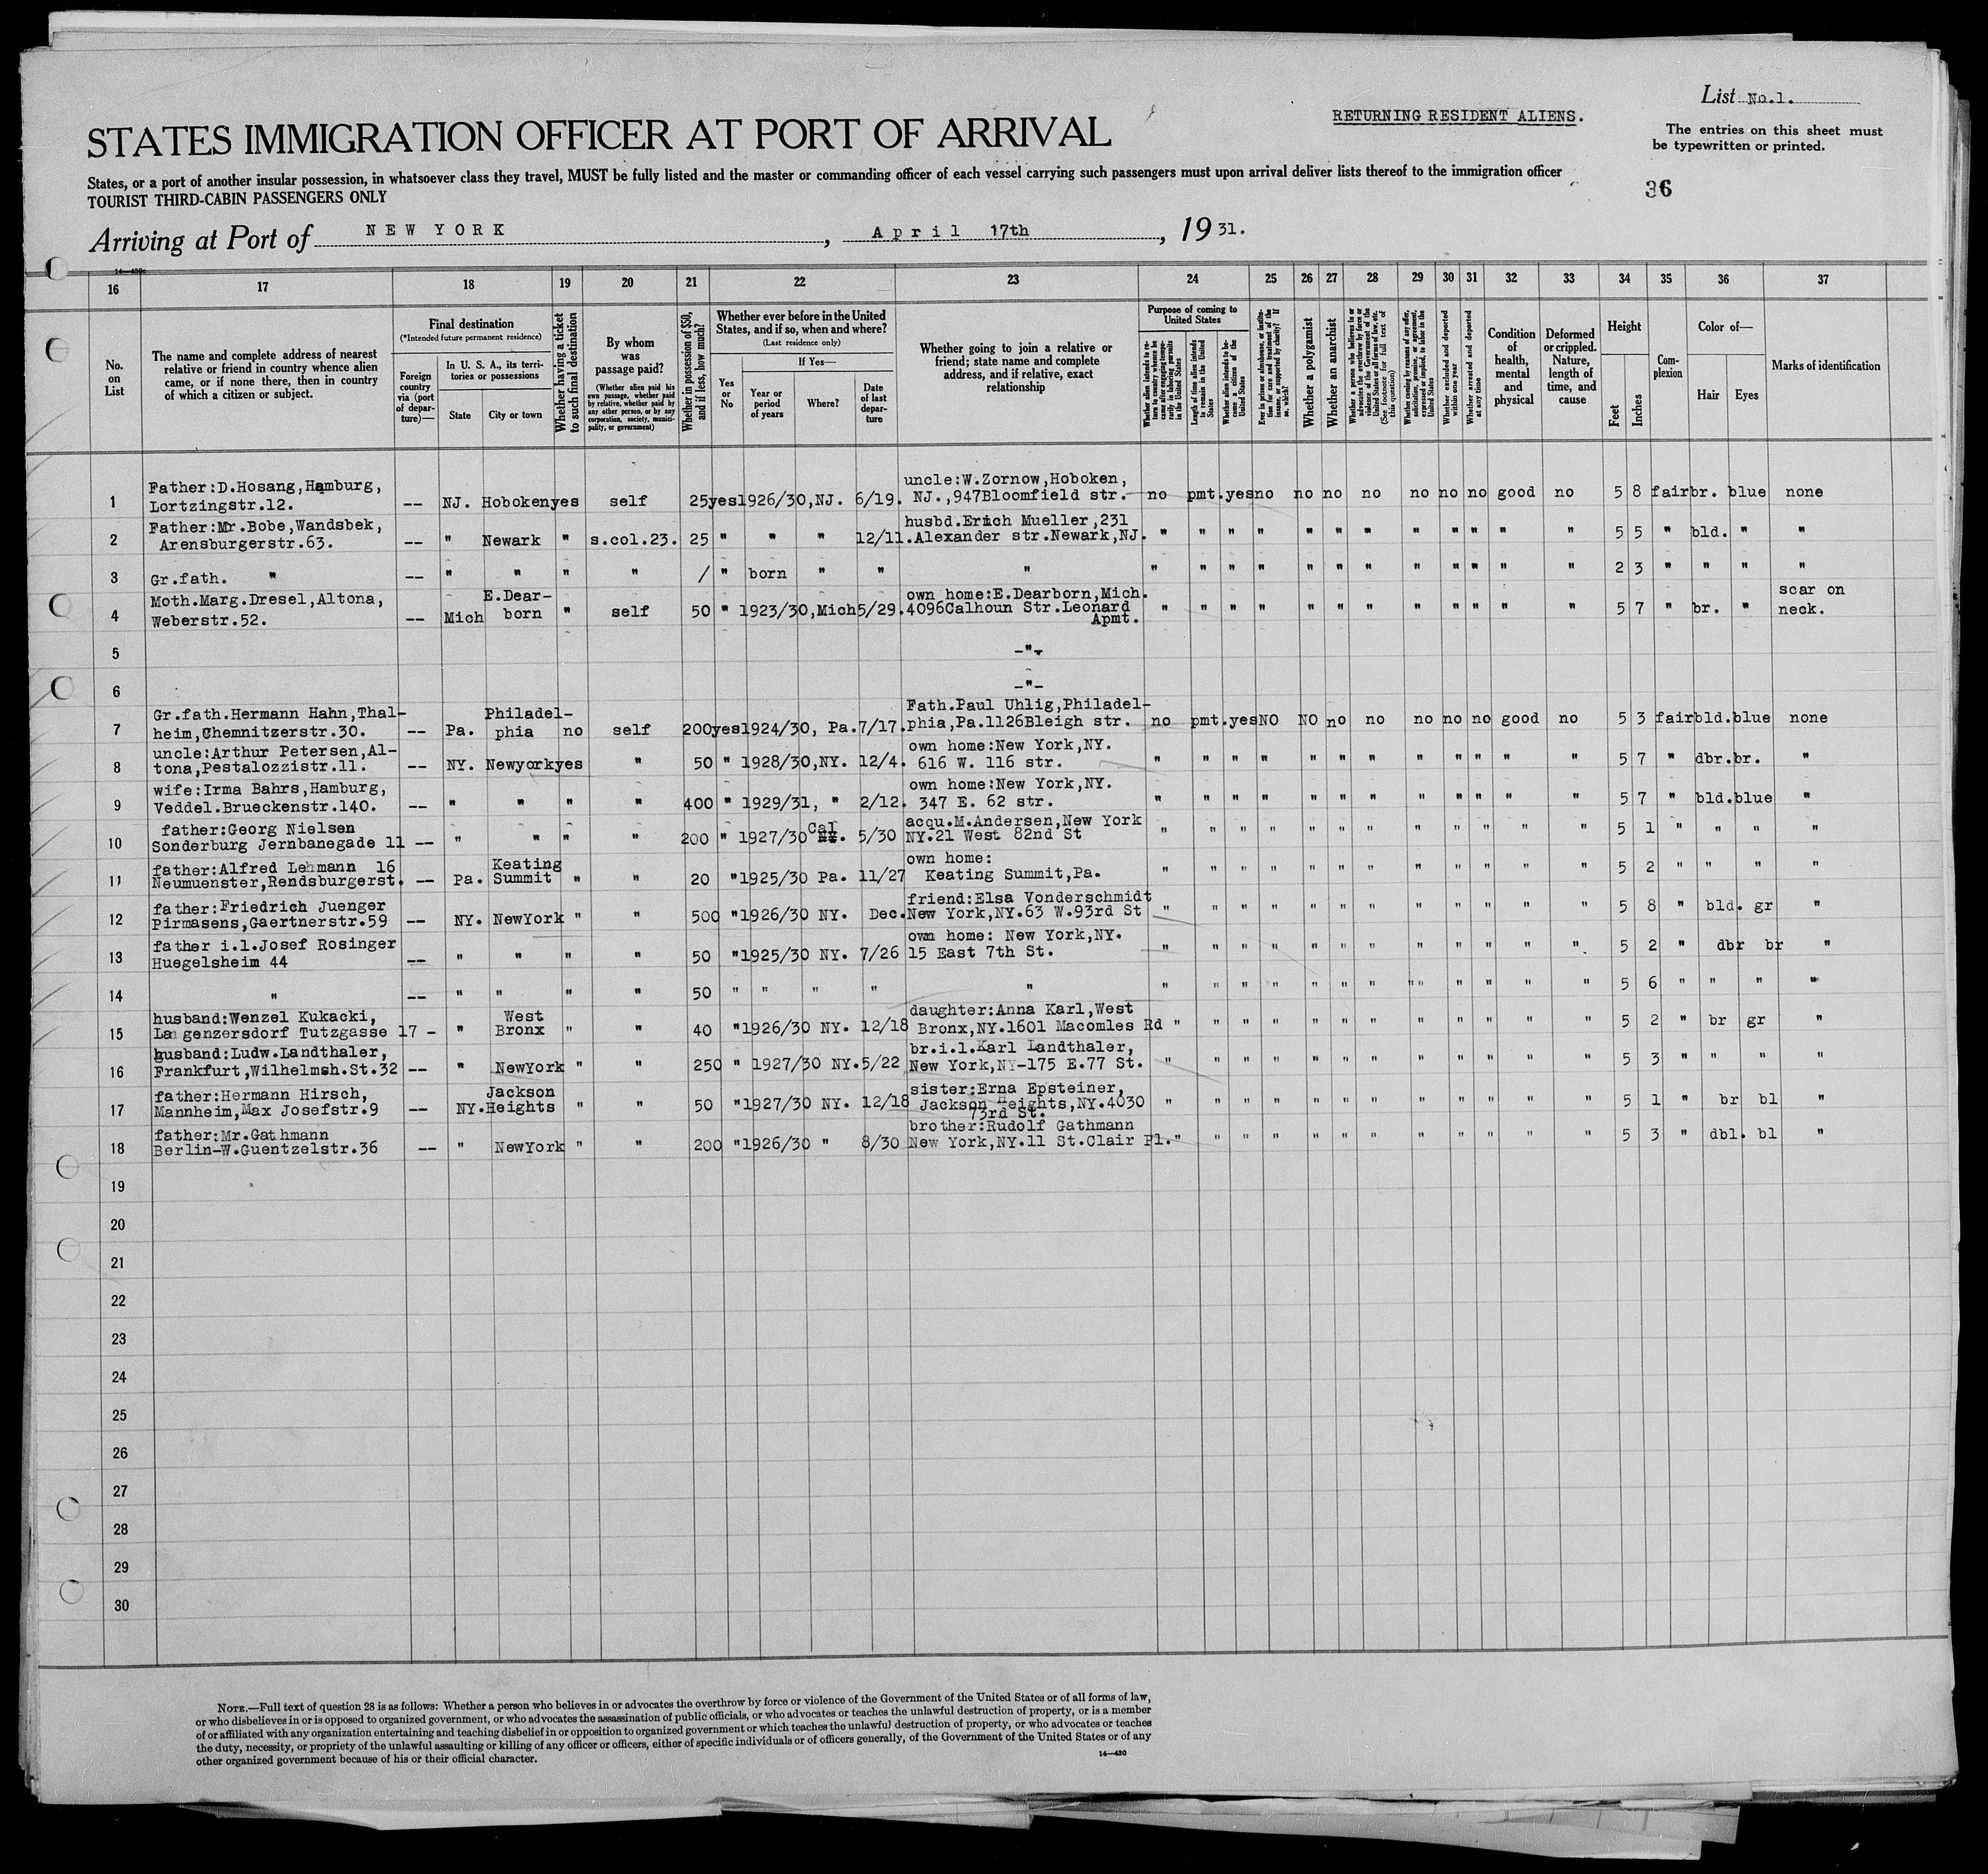 List No.1.
RETURNING RESIDENT ALIENS.
STATES IMMIGRATION OFFICER AT PORT OF ARRIVAL
The entries on this sheet must
be typewritten or printed.
States, or a port of another insular possession, in whatsoever class they travel, MUST be fully listed and the master or commanding officer of each vessel carrying such passengers must upon arrival deliver lists thereof to the immigration officer
TOURIST THIRD-CABIN PASSENGERS ONLY
36
Arriving at Port of NEW YORK, April 17th, 1931.
16 17 18 19 20 21 22 23 24 25 26 27 28 29 30 31 32 33 34 35 36 37
No.
on
List
The name and complete address of nearest
relative or friend in country whence alien
came, or if none there, then in country
of which a citizen or subject.
Final destination
(*Intended future permanent residence)
Foreign
country
via (port
of depar-
ture)—
In U. S. A., its terri-
tories or possessions
State
City or town
Whether having a ticket
to such final destination
By whom
was
passage paid?
(Whether alien paid his
own passage, whether paid
by relative, whether paid by
any other person, or by any
corporation, society, munici-
pality, or government)
Whether in possession of $50,
and if less, how much?
Whether ever before in the United
States, and if so, when and where?
(Last residence only)
Yes
or
No
If Yes—
Year or
period
of years
Where?
Date
of last
depar-
ture
Whether going to join a relative or
friend; state name and complete
address, and if relative, exact
relationship
Purpose of coming to
United States
Whether alien intends to re-
turn to country whence he
came after engaging tempo-
rarily in laboring pursuits
in the United States
Length of time alien intends
to remain in the United
States
Whether alien intends to be-
come a citizen of the
United States
Ever in prison or almshouse, or institu-
tion for care and treatment of the
insane, or supported by charity? If
so, which?
Whether a polygamist
Whether an anarchist
Whether a person who believes in or
advocates the overthrow by force or
violence of the Government of the
United States or all forms of law, etc.
(See footnote for full text of
this question)
Whether coming by reasons of any offer,
solicitation, promise, or agreement,
expressed or implied, to labor in the
United States
Whether excluded and deported
within one year
Whether arrested and deported
at any time
Condition
of
health,
mental
and
physical
Deformed
or crippled.
Nature,
length of
time, and
cause
Height
Feet
Inches
Com-
plexion
Color of—
Hair
Eyes
Marks of identification
Father:D.Hosang,Hamburg, uncle:W.Zornow,Hoboken,
1 Lortzingstr.12. -- NJ. Hoboken yes self 25 yes 1926/30,NJ. 6/19. NJ.,947Bloomfield str. no pmt. yes no no no no no no no good no 5 8 fair br. blue none
Father:Mr.Bobe,Wandsbek, husbd.Erich Mueller,231
2 Arensburgerstr.63. -- " Newark " s.col.23. 25 " " " 12/11. Alexander str.Newark,NJ. " " " " " " " " " " " " 5 5 " bld. " "
3 Gr.fath. " -- " " " " / " born " " " " " " " " " " " " " " " 2 3 " " " "
Moth.Marg.Dresel,Altona, E.Dear- own home:E.Dearborn,Mich. scar on
4 Weberstr.52. -- Mich born " self 50 " 1923/30,Mich 5/29. 4096Calhoun Str.Leonard " " " " " " " " " " " " 5 7 " br. " neck.
Apmt.
5 -"-
6 -"-
Gr.fath.Hermann Hahn,Thal- Philadel- Fath.Paul Uhlig,Philadel-
7 heim,Chemnitzerstr.30. -- Pa. phia no self 200 yes 1924/30, Pa. 7/17. phia,Pa.1126Bleigh str. no pmt. yes NO NO no no no no no good no 5 3 fair bld. blue none
uncle:Arthur Petersen,Al- own home:New York,NY.
8 tona,Pestalozzistr.11. -- NY. Newyork yes " 50 " 1928/30,NY. 12/4. 616 W. 116 str. " " " " " " " " " " " " 5 7 " dbr. br. "
wife:Irma Bahrs,Hamburg, own home:New York,NY.
9 Veddel.Brueckenstr.140. -- " " " " 400 " 1929/31, " 2/12. 347 E. 62 str. " " " " " " " " " " " " 5 7 " bld. blue "
father:Georg Nielsen Cal acqu.M.Andersen,New York
10 Sonderburg Jernbanegade 11 -- " " " " 200 " 1927/30 NY. 5/30 NY.21 West 82nd St " " " " " " " " " " " " 5 1 " " " "
father:Alfred Lehmann 16 Keating own home:
11 Neumuenster,Rendsburgerst. -- Pa. Summit " " 20 " 1925/30 Pa. 11/27 Keating Summit,Pa. " " " " " " " " " " " " 5 2 " " " "
father:Friedrich Juenger friend:Elsa Vonderschmidt
12 Pirmasens,Gaertnerstr.59 -- NY. NewYork " " 500 " 1926/30 NY. Dec. New York,NY.63 W.93rd St " " " " " " " " " " " " 5 8 " bld. gr "
father i.l.Josef Rosinger own home: New York,NY.
13 Huegelsheim 44 -- " " " " 50 " 1925/30 NY. 7/26 15 East 7th St. " " " " " " " " " " " " 5 2 " dbr br "
14 " -- " " " " 50 " " " " " " " " " " " " " " " " " " 5 6 " " " "
husband:Wenzel Kukacki, West daughter:Anna Karl,West
15 Langenzersdorf Tutzgasse 17 - " Bronx " " 40 " 1926/30 NY. 12/18 Bronx,NY.1601 Macomles Rd " " " " " " " " " " " " 5 2 " br gr "
husband:Ludw.Landthaler, br.i.l.Karl Landthaler,
16 Frankfurt,Wilhelmsh.St.32 -- " NewYork " " 250 " 1927/30 NY. 5/22 New York,NY-175 E.77 St. " " " " " " " " " " " " 5 3 " " " "
father:Hermann Hirsch, Jackson sister:Erna Epsteiner,
17 Mannheim,Max Josefstr.9 -- NY. Heights " " 50 " 1927/30 NY. 12/18 Jackson Heights,NY.4030 " " " " " " " " " " " " 5 1 " br bl "
73rd St.
father:Mr.Gathmann brother:Rudolf Gathmann
18 Berlin-W.Guentzelstr.36 -- " NewYork " " 200 " 1926/30 " 8/30 New York,NY.11 St.Clair Pl. " " " " " " " " " " " " 5 3 " dbl. bl "
19
20
21
22
23
24
25
26
27
28
29
30
NOTE.—Full text of question 28 is as follows: Whether a person who believes in or advocates the overthrow by force or violence of the Government of the United States or of all forms of law,
or who disbelieves in or is opposed to organized government, or who advocates the assassination of public officials, or who advocates or teaches the unlawful destruction of property, or is a member
of or affiliated with any organization entertaining and teaching disbelief in or opposition to organized government or which teaches the unlawful destruction of property, or who advocates or teaches
the duty, necessity, or propriety of the unlawful assaulting or killing of any officer or officers, either of specific individuals or of officers generally, of the Government of the United States or of any
other organized government because of his or their official character.
14—430